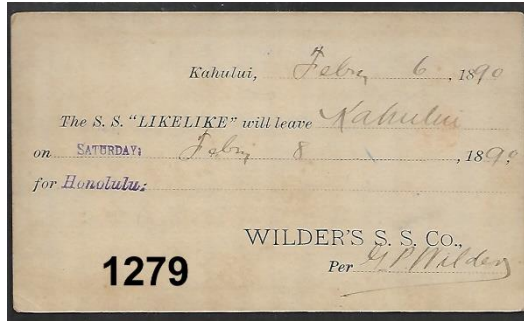 Kahului, Febry 6, 1890
The S. S. "LIKELIKE" will leave Kahului
on SATURDAY: Febry 8, 1890,
for Honolulu:
WILDER'S S. S. CO.,
Per G P Wilder
1279